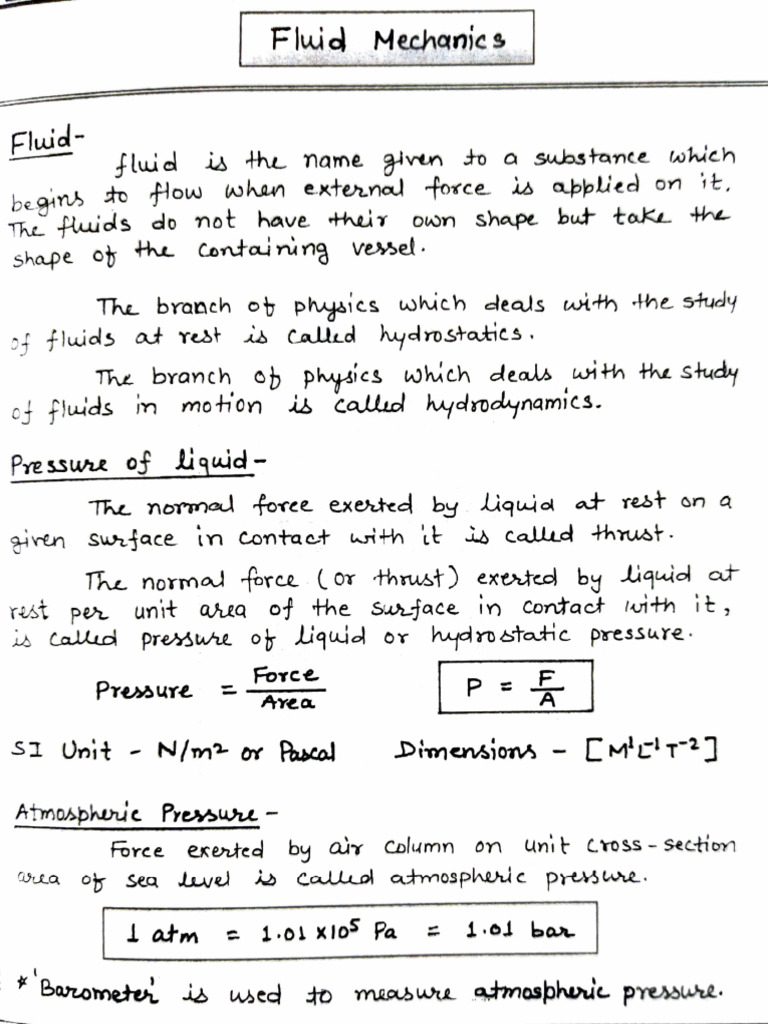 Fluid Mechanics
Fluid-
fluid is the name given to a substance which
begins to flow when external force is applied on it.
The fluids do not have their own shape but take the
shape of the containing vessel.
The branch of physics which deals with the study
of fluids at rest is called hydrostatics.
The branch of physics which deals with the study
of fluids in motion is called hydrodynamics.
Pressure of liquid-
The normal force exerted by liquid at rest on a
given surface in contact with it is called thrust.
The normal force (or thrust) exerted by liquid at
rest per unit area of the surface in contact with it,
is called pressure of liquid or hydrostatic pressure.
Pressure = Force/Area P = F/A
SI Unit - N/m² or Pascal Dimensions - [M¹L⁻¹T⁻²]
Atmospheric Pressure-
Force exerted by air column on unit cross-section
area of sea level is called atmospheric pressure.
1 atm = 1.01 x 10⁵ Pa = 1.01 bar
* 'Barometer' is used to measure atmospheric pressure.